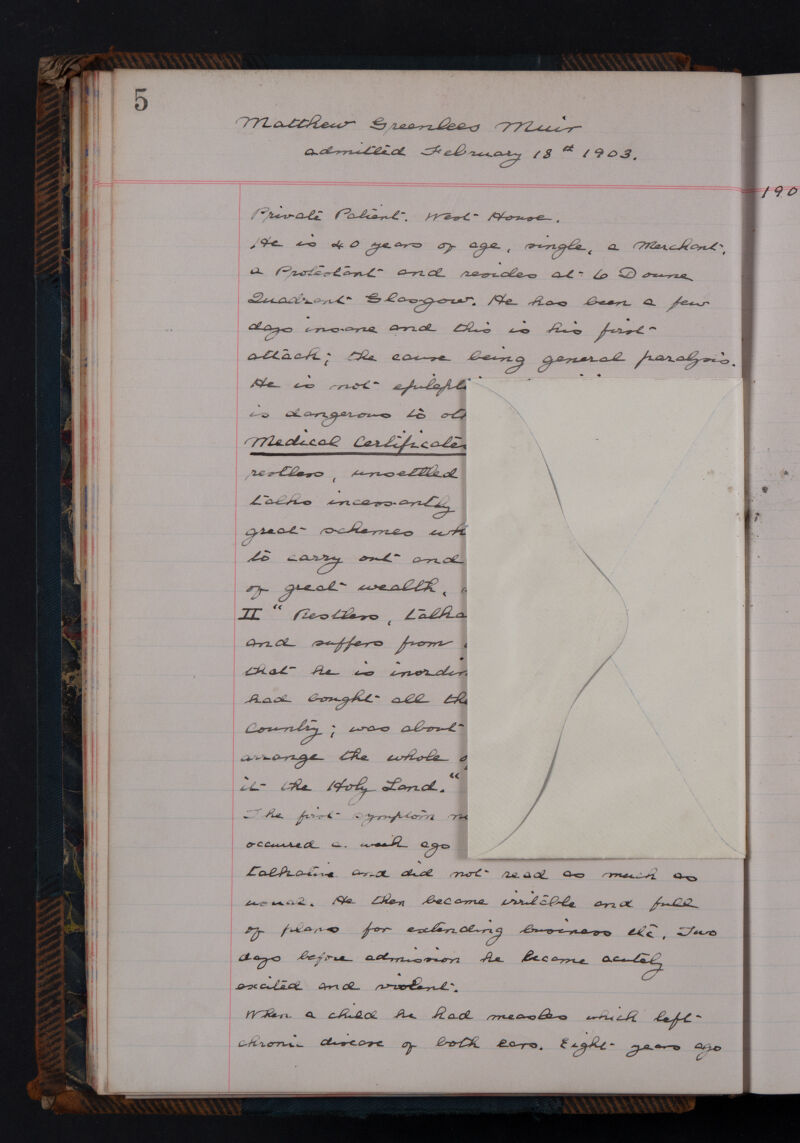 5
Matthew Greenlees Muir
admitted February 18th 1903.
190
Private Patient. West House.
He is 40 years of age, single, a Merchant,
a Protestant and resides at 6 Doune
Quadrant Glasgow. He has been a few
days insane and this is his first
attack; the cause being general paralysis.
He is not
is dangerous to
Medical Certificates
restless, unsettled
talks incessantly
great schemes
to carry out and
of great wealth,
II "Restless,
and suffers from
that he is
had bought all
Country; was about
arrange the whole
it the Holy Land."
The first symptom
occurred a week ago
talkative and did not read as much as
usual. He then became irritable and full
of plans for extending business etc. Two
days before admission he became acutely
excited and violent.
When a child he had measles which left
chronic disease of both ears. Eight years ago